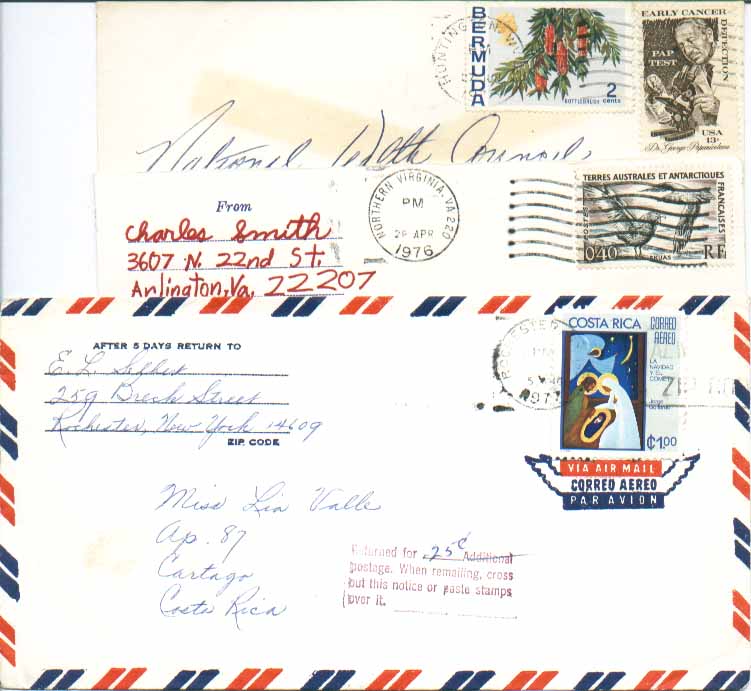 BERMUDA
BOTTLEBRUSH 2
cents
EARLY CANCER
DETECTION
PAP
TEST
USA
13c
Dr. George Papanicolaou
National
NORTHERN VIRGINIA, VA 220
PM
28 APR
1976
TERRES AUSTRALES ET ANTARCTIQUES
FRANÇAISES
POSTES
0,40
SKUAS
RF
From
Charles Smith
3607 N. 22nd St.
Arlington, Va. 22207
AFTER 5 DAYS RETURN TO
E. L.
259 Street
Rochester, New York 14609
ZIP CODE
ROCHESTER
PM
1977
COSTA RICA
CORREO
AEREO
LA
NAVIDAD
Y EL
COMETA
₡1.00
VIA AIR MAIL
CORREO AEREO
PAR AVION
Miss Lia Valle
Ap. 87
Cartago
Costa Rica
Returned for 25¢ Additional
postage. When remailing, cross
out this notice or paste stamps
over it.